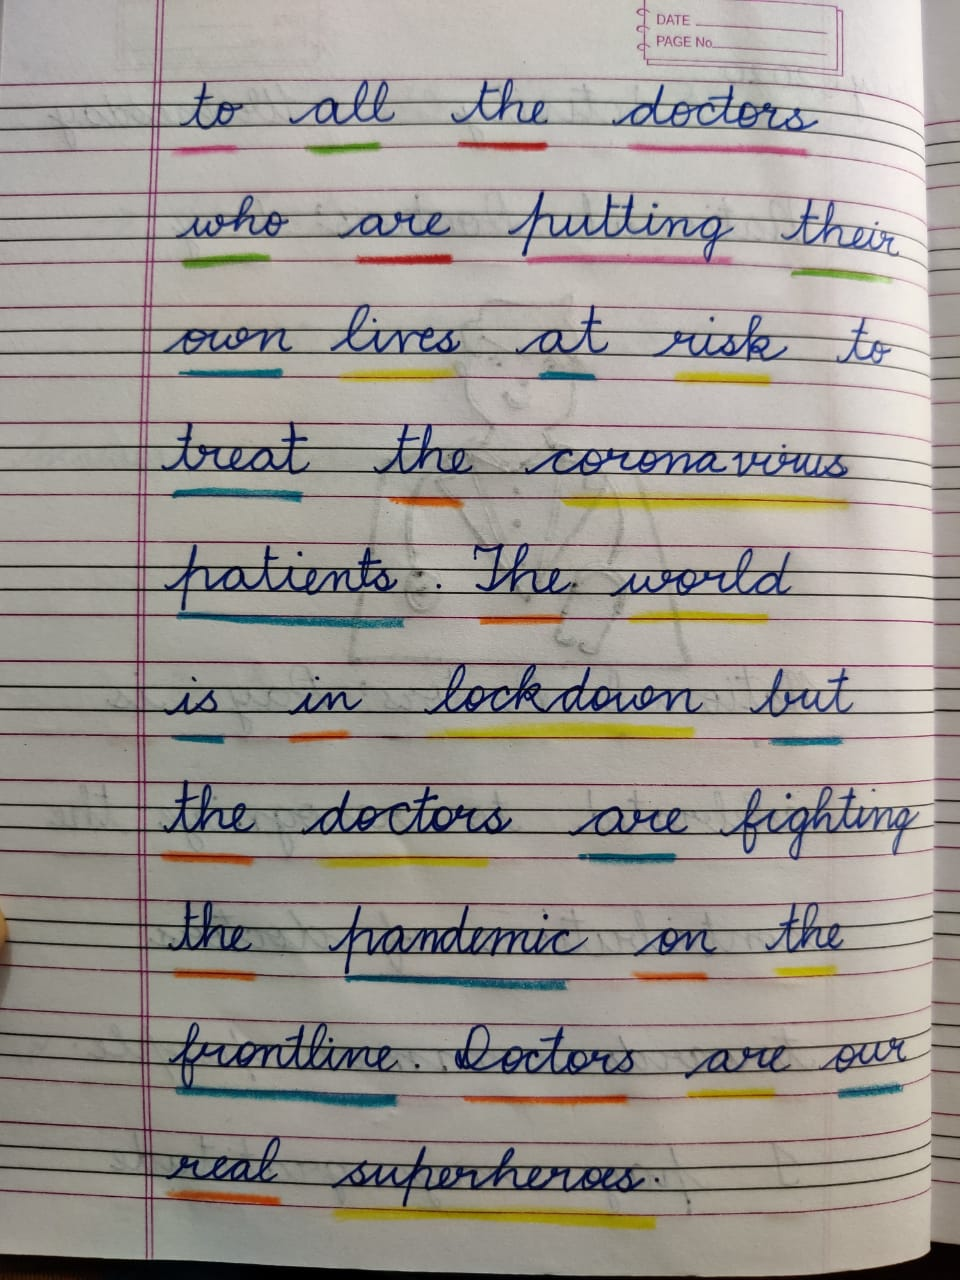 DATE
PAGE No.
to all the doctors
who are putting their
own lives at risk to
treat the coronavirus
patients. The world
is in lockdown but
the doctors are fighting
the pandemic on the
frontline. Doctors are our
real superheroes.